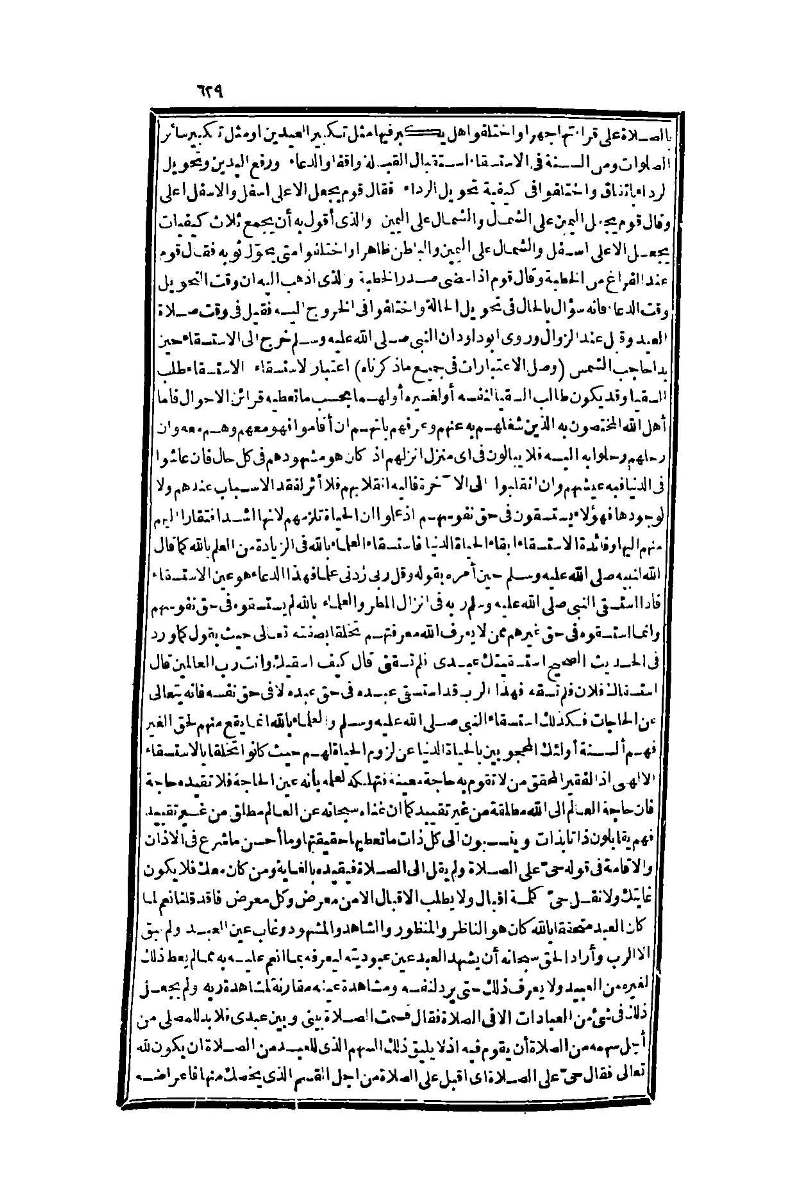 ٦٢٩
بالصلاة على قراءتها جهرا واختلفوا هل يكبر فيها مثل تكبير العيدين او مثل تكبير سائر
الصلوات ومن السنة فى الاستسقاء استقبال القبلة واقفا والدعاء ورفع اليدين وتحويل
لرداء باتفاق واختلفوا فى كيفية تحويل الرداء فقال قوم يجعل الاعلى اسفل والاسفل اعلى
وقال قوم يجعل اليمين على الشمال والشمال على اليمين والذى أقول به أن يجمع ثلاث كيفيات
يجعل الاعلى اسفل والشمال على اليمين والباطن ظاهرا واختلفوا متى يحوّل ثوبه فقال قوم
عند الفراغ من الخطبة وقال قوم اذا مضى صدر الخطبة والذى اذهب اليه ان وقت التحويل
وقت الدعاء فانه سؤال بالحال فى تحويل الحالة واختلفوا فى الخروج اليه فقيل فى وقت صلاة
العيد وقيل عند الزوال وروى ابو داود ان النبى صلى الله عليه وسلم خرج الى الاستسقاء حين
بدا حاجب الشمس (وصل الاعتبارات فى جميع ما ذكرناه) اعتبار لاستسقاء الاستسقاء طلب
السقيا وقد يكون طالب السقيا لنفسه أو لغيره أو لهما بحسب ما تعطيه قرائن الاحوال فاما
أهل الله المختصون به الذين شغلهم به عنهم وعرفهم بانهم ان أقاموا فهو معهم وهم معه وان
رحلهم رحلوا به اليه فلا يبالون فى اى منزل انزلهم اذ كان هو مشهودهم فى كل حال فان عاشوا
فى الدنيا فبه عيشهم وان انقلبوا الى الآخرة فاليه انقلابهم فلا أثر لفقد الاسباب عندهم ولا
لوجودها فهؤلاء يستسقون فى حق نفوسهم اذ علموا ان الحياة تلزمهم لانها اشد افتقارا اليهم
منهم اليها وفائدة الاستسقاء ابقاء الحياة الدنيا فاستسقاء العلماء بالله فى الزيادة من العلم بالله كما قال
الله لنبيه صلى الله عليه وسلم حين أمره بقوله وقل ربى زدنى علما فهذا الدعاء هو عين الاستسقاء
فاذا استسقى النبى صلى الله عليه وسلم ربه فى انزال المطر والعلماء بالله لم يستسقوه فى حق نفوسهم
وانما استسقوه فى حق غيرهم ممن لا يعرف الله معرفتهم تخلقا بصفته تعالى حيث يقول كما ورد
فى الحديث الصحيح استسقيتك عبدى فلم تسقنى قال كيف اسقيك وانت رب العالمين قال
استسقاك فلان فلم تسقه فهذا الرب قد استسقى عبده فى حق عبده لا فى حق نفسه فانه يتعالى
عن الحاجات فكذلك استسقاء النبى صلى الله عليه وسلم والعلماء بالله انما يقع منهم لحق الغير
فهم ألسنة أولئك المحجوبين بالحياة الدنيا عن لزوم الحياة لهم حيث كانوا تخلقا بالاستسقاء
الالهى اذ الفقير المحقق من لا تقوم به حاجة معينة فتهلكه لعلمه بانه عين الحاجة فلا تقيده حاجة
فان حاجة العالم الى الله مطلقة من غير تقييد كما ان غناه سبحانه عن العالم مطلق من غير تقييد
فهم يقابلون ذاتا بذات وينسبون الى كل ذات ما تعطيها حقيقتها وما أحسن ما شرع فى الاذان
والاقامة فى قوله حىّ على الصلاة ولم يقل الى الصلاة فيقيده بالغاية ومن كان معك فلا يكون
غايتك ولا نقل حىّ كلمة اقبال ولا يطلب الاقبال الا من معرض وكل معرض فاقد قلنا نعم لما
كان العبد متحققا بالله كان هو الناظر والمنظور والشاهد والمشهود وغاب عين العبد ولم يبق
الا الرب وأراد الحق سبحانه أن يشهد العبد عين عبوديته ليعرفه بما انعم عليه به مما لم يعط ذلك
لغيره من العبيد ولا يعرف ذلك حتى يرد لنفسه ومشاهدة عينه مقارنة لمشاهدة ربه ولم يجعل
ذلك فى شئ من العبادات الا فى الصلاة فقال قسمت الصلاة بينى وبين عبدى فلا بد للمصلى من
أجل سهمه من الصلاة أن يقوم فيه اذ لا يليق ذلك السهم الذى للعبد من الصلاة ان يكون لله
تعالى فقال حىّ على الصلاة اى اقبل على الصلاة من اجل القسم الذى يخصك منها فاعراضه